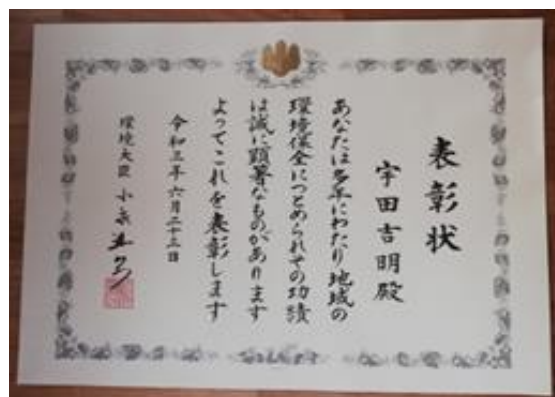 表彰状
宇田吉明殿
あなたは多年にわたり地域の
環境保全につとめられその功績
は誠に顕著なものがあります
よってこれを表彰します
令和三年六月二十三日
環境大臣 小泉